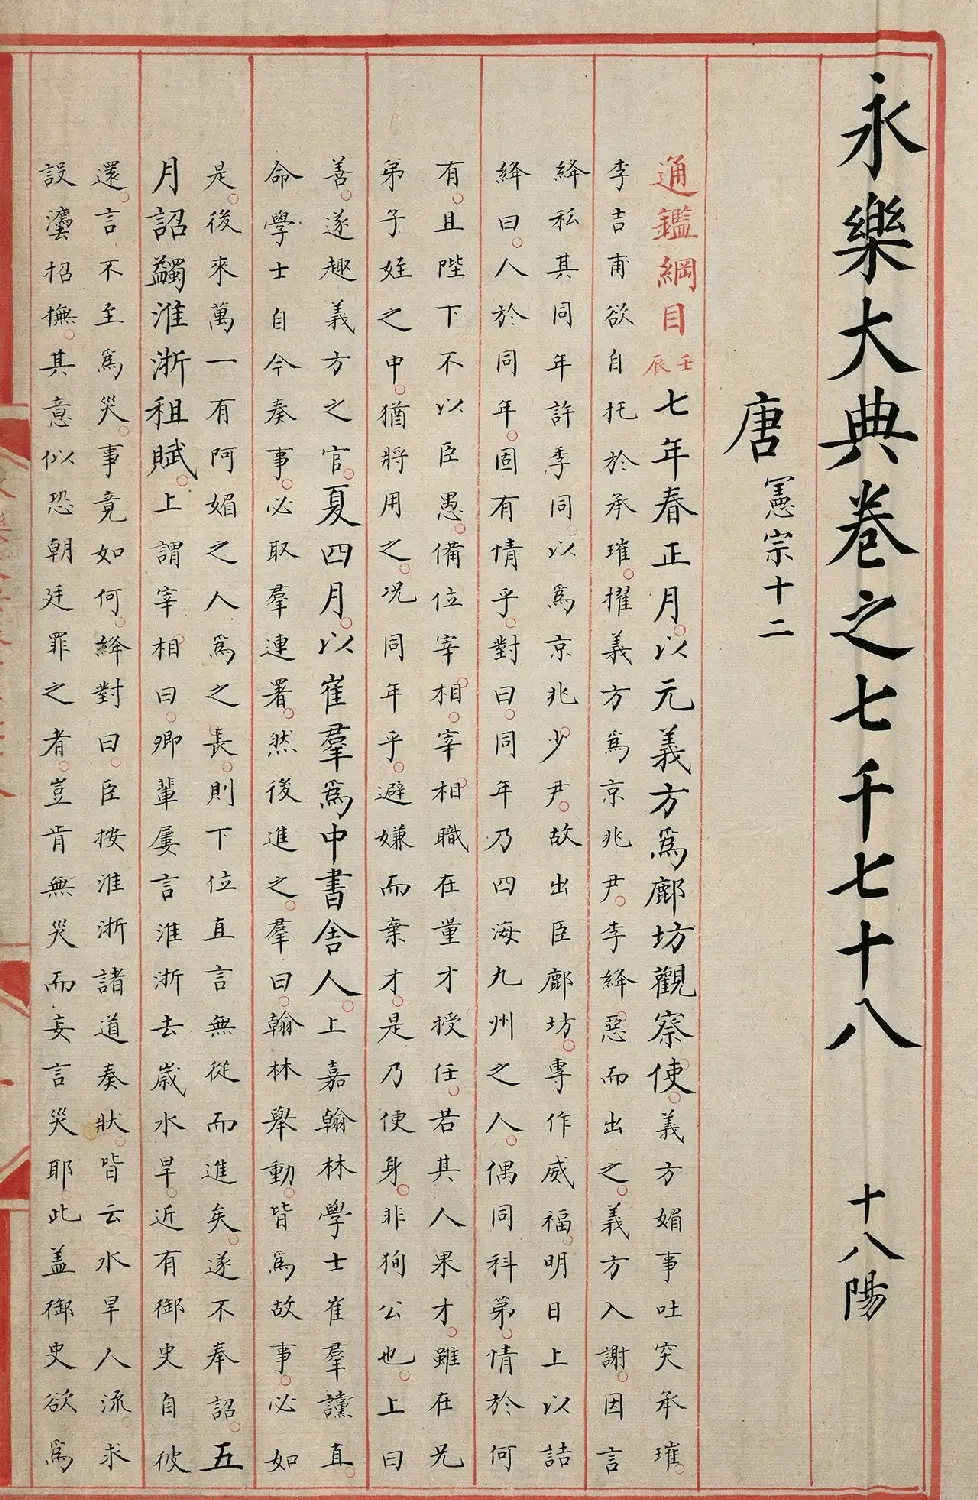 永樂大典卷之七千七十八 十八陽
唐 憲宗十二
通鑑綱目 壬辰 七年春正月。以元義方為鄜坊觀察使。義方媚事吐突承璀。
李吉甫欲自托於承璀。擢義方為京兆尹。李絳惡而出之。義方入謝。因言
絳私其同年許季同。以為京兆少尹。故出臣鄜坊。專作威福。明日上以詰
絳曰。人於同年。固有情乎。對曰。同年乃四海九州之人。偶同科第。情於何
有。且陛下不以臣愚。備位宰相。宰相職在量才授任。若其人果才。雖在兄
弟子姪之中。猶將用之。况同年乎。避嫌而棄才。是乃便身。非狥公也。上曰
善。遂趣義方之官。夏四月。以崔羣為中書舍人。上嘉翰林學士崔羣讜直。
命學士自今奏事。必取羣連署。然後進之。羣曰。翰林舉動。皆為故事。必如
是。後來萬一有阿媚之人為之長。則下位直言無從而進矣。遂不奉詔。五
月詔蠲淮浙租賦。上謂宰相曰。卿輩屢言淮浙去歲水旱。近有御史自彼
還。言不至為災。事竟如何。絳對曰。臣按淮浙諸道奏狀。皆云水旱人流。求
設灋招撫。其意似恐朝廷罪之者。豈肯無災而妄言災耶此蓋御史欲為